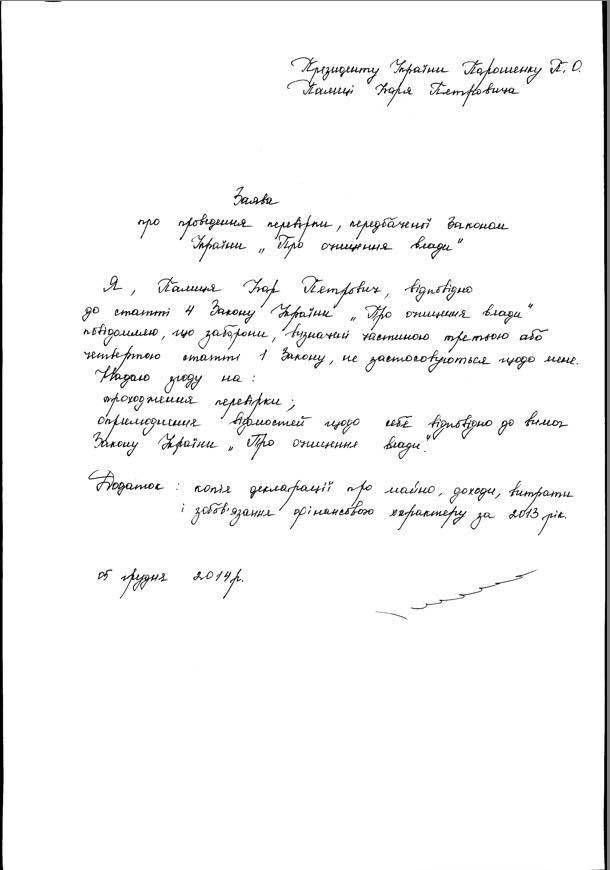 Президенту України Порошенку П.О.
Палиці Ігоря Петровича
Заява
про проведення перевірки, передбаченої Законом
України „Про очищення влади"
Я, Палиця Ігор Петрович, відповідно
до статті 4 Закону України „Про очищення влади"
повідомляю, що заборони, визначені частиною третьою або
четвертою статті 1 Закону, не застосовуються щодо мене.
Надаю згоду на:
проходження перевірки;
оприлюднення відомостей щодо себе відповідно до вимог
Закону України „Про очищення влади".
Додаток: копія декларації про майно, доходи, витрати
і зобов'язання фінансового характеру за 2013 рік.
05 грудня 2014р.